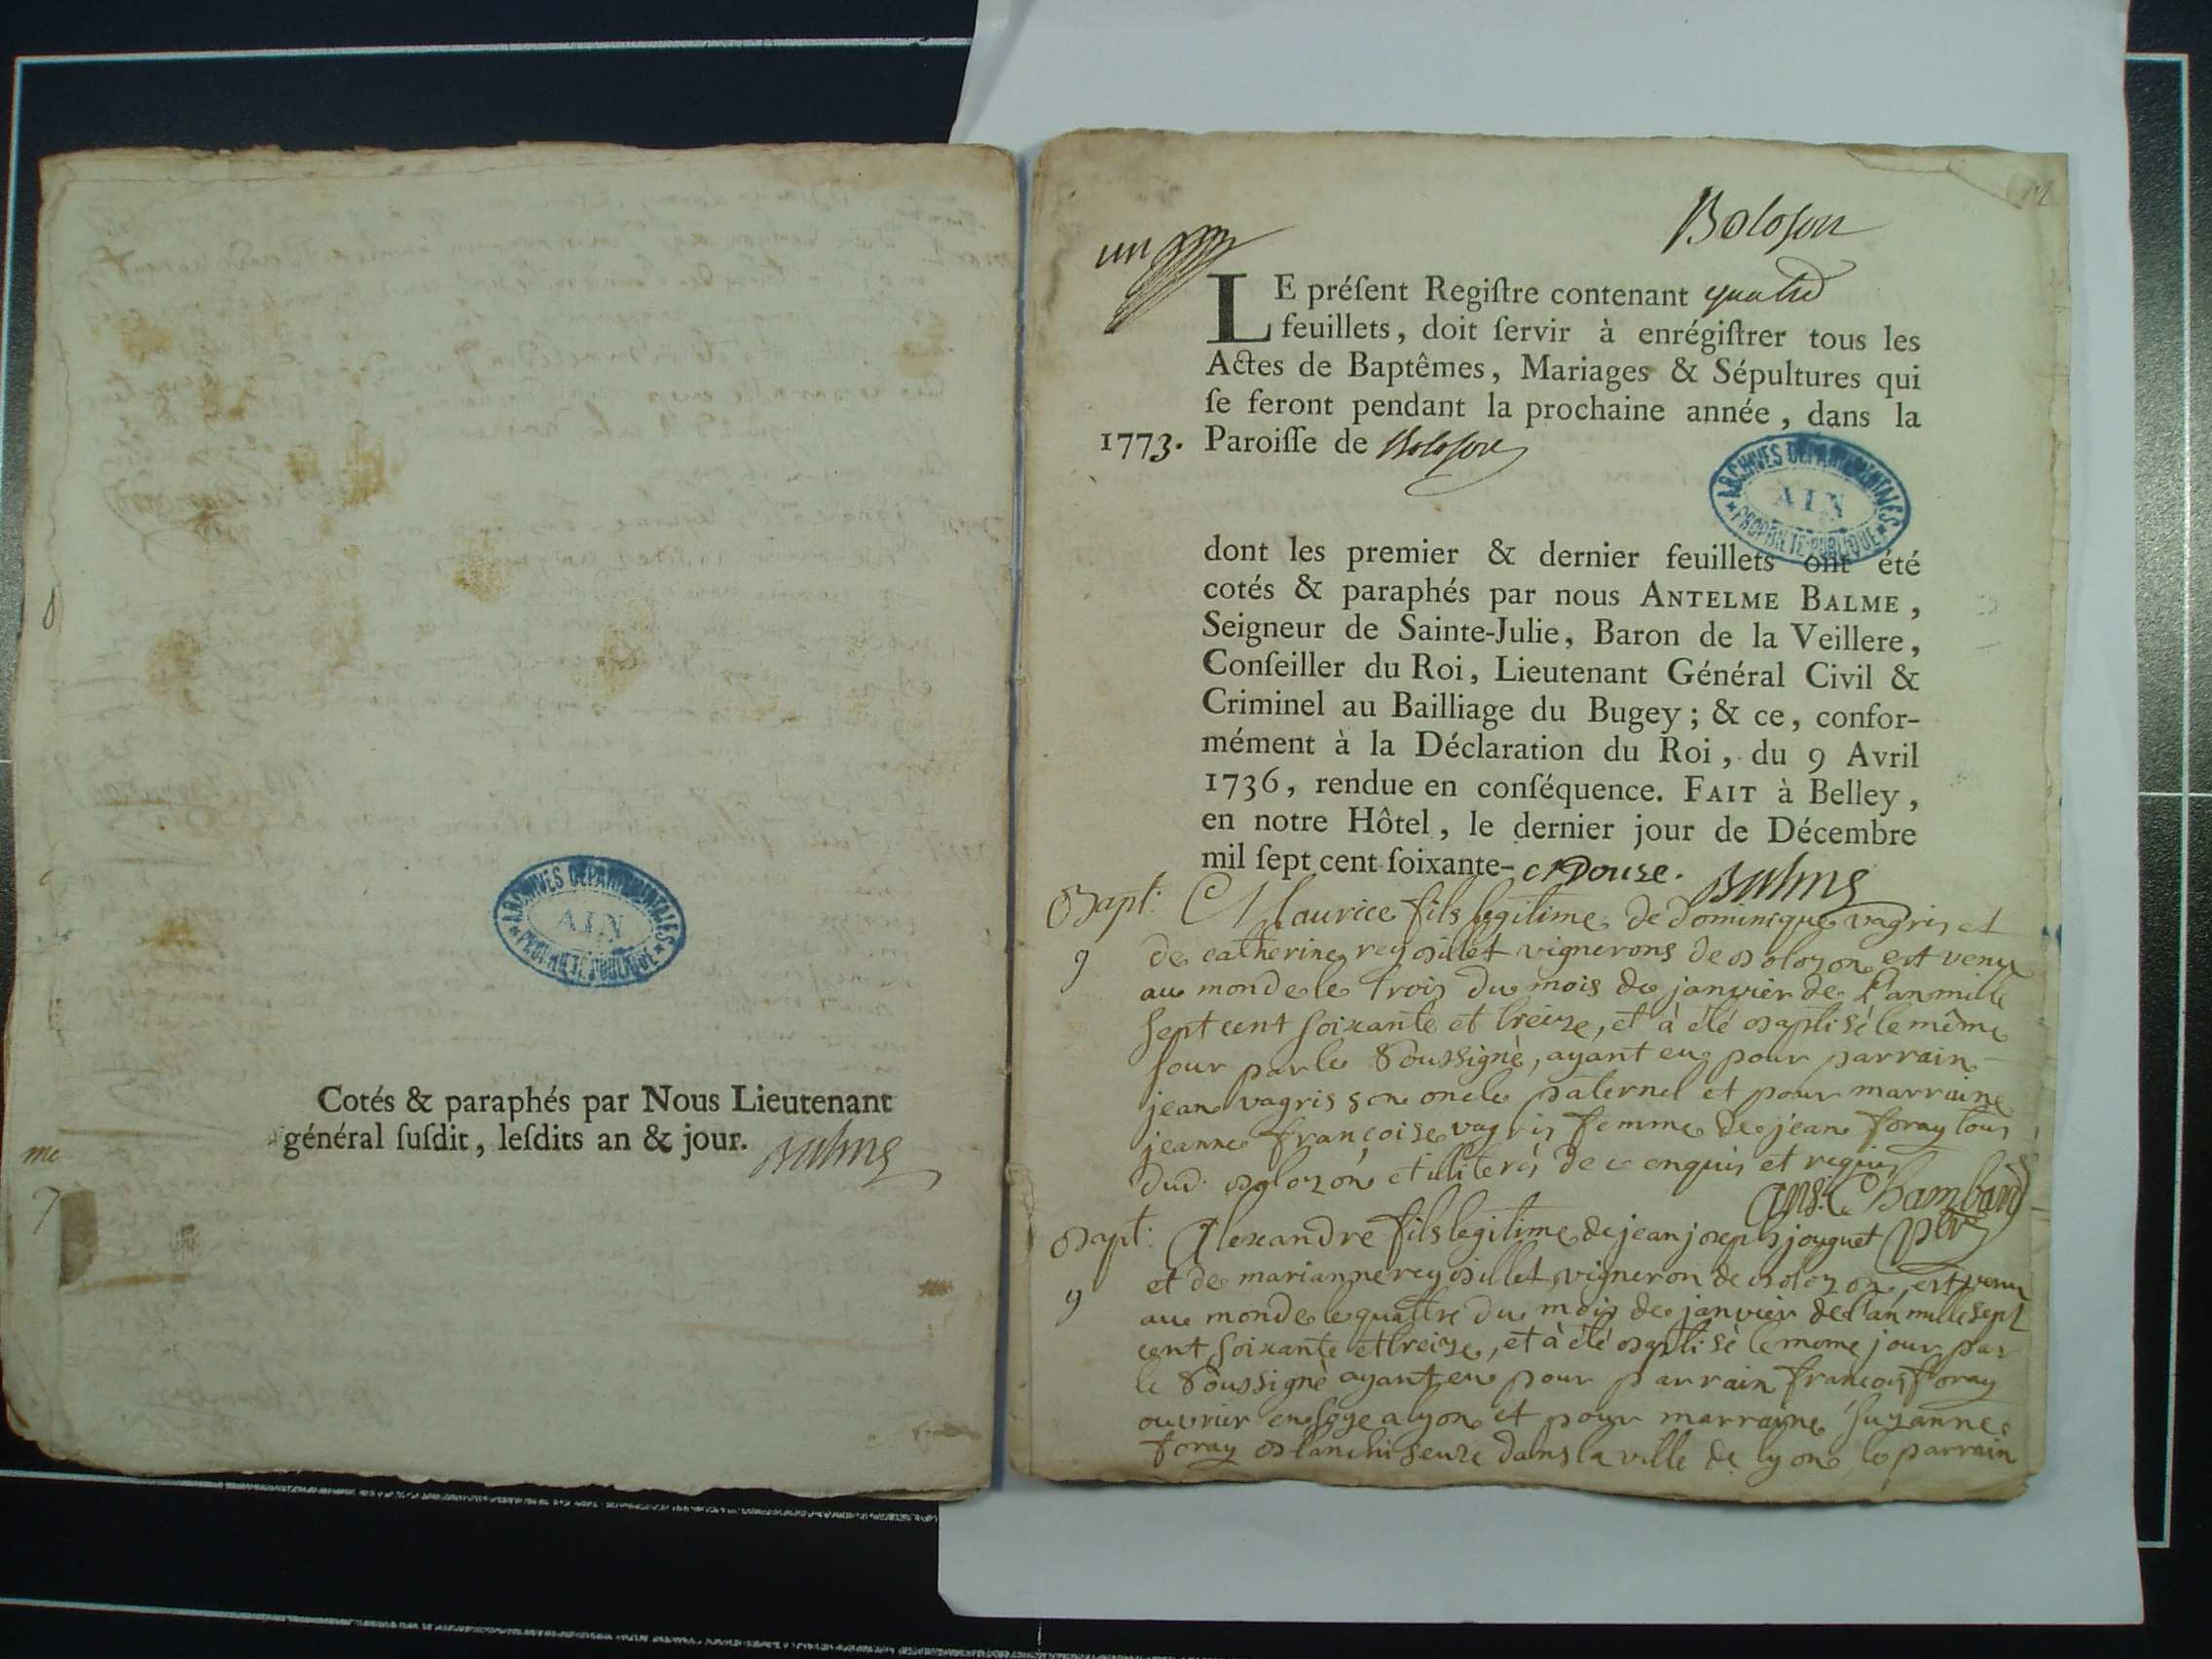 ARCHIVES DÉPARTEMENTALES
AIN
PROPRIÉTÉ PUBLIQUE
Cotés & paraphés par Nous Lieutenant
général ſuſdit, leſdits an & jour. Balme
un
Boloson
LE préſent Regiſtre contenant quatre
feuillets, doit ſervir à enrégiſtrer tous les
Actes de Baptêmes, Mariages & Sépultures qui
ſe feront pendant la prochaine année, dans la
1773. Paroiſſe de Boloson
ARCHIVES DÉPARTEMENTALES
AIN
PROPRIÉTÉ PUBLIQUE
dont les premier & dernier feuillets ont été
cotés & paraphés par nous ANTELME BALME,
Seigneur de Sainte-Julie, Baron de la Veillere,
Conſeiller du Roi, Lieutenant Général Civil &
Criminel au Bailliage du Bugey; & ce, confor-
mément à la Déclaration du Roi, du 9 Avril
1736, rendue en conſéquence. FAIT à Belley,
en notre Hôtel, le dernier jour de Décembre
mil ſept cent ſoixante-et Douse. Balme
Bapt: Maurice fils legitime de dominique vagris et
9 de catherine rey billet vignerons de bolozon est venu
au monde le trois du mois de janvier de l'an mille
sept cent soixante et treize, et à été baptisé le même
jour par le Soussigné, ayant eu pour parrain
jean vagris son oncle paternel et pour marraine
jeanne françoise vagris femme de jean foray tous
dud. bolozon et illiterés de ce enquis et requis
Chambard
Bapt: Alexandre fils legitime de jean joseph jouguet
9 et de marianne rey billet vigneron de bolozon, est venu
au monde le quattre du mois de janvier de l'an mille sept
cent soixante et treize, et à été baptisé le mome jour par
le Soussigné ayant eu pour parrain françois foray
ouvrier en soye a lyon et pour marraine suzanne
foray blanchiseuse dans la ville de lyon le parrain